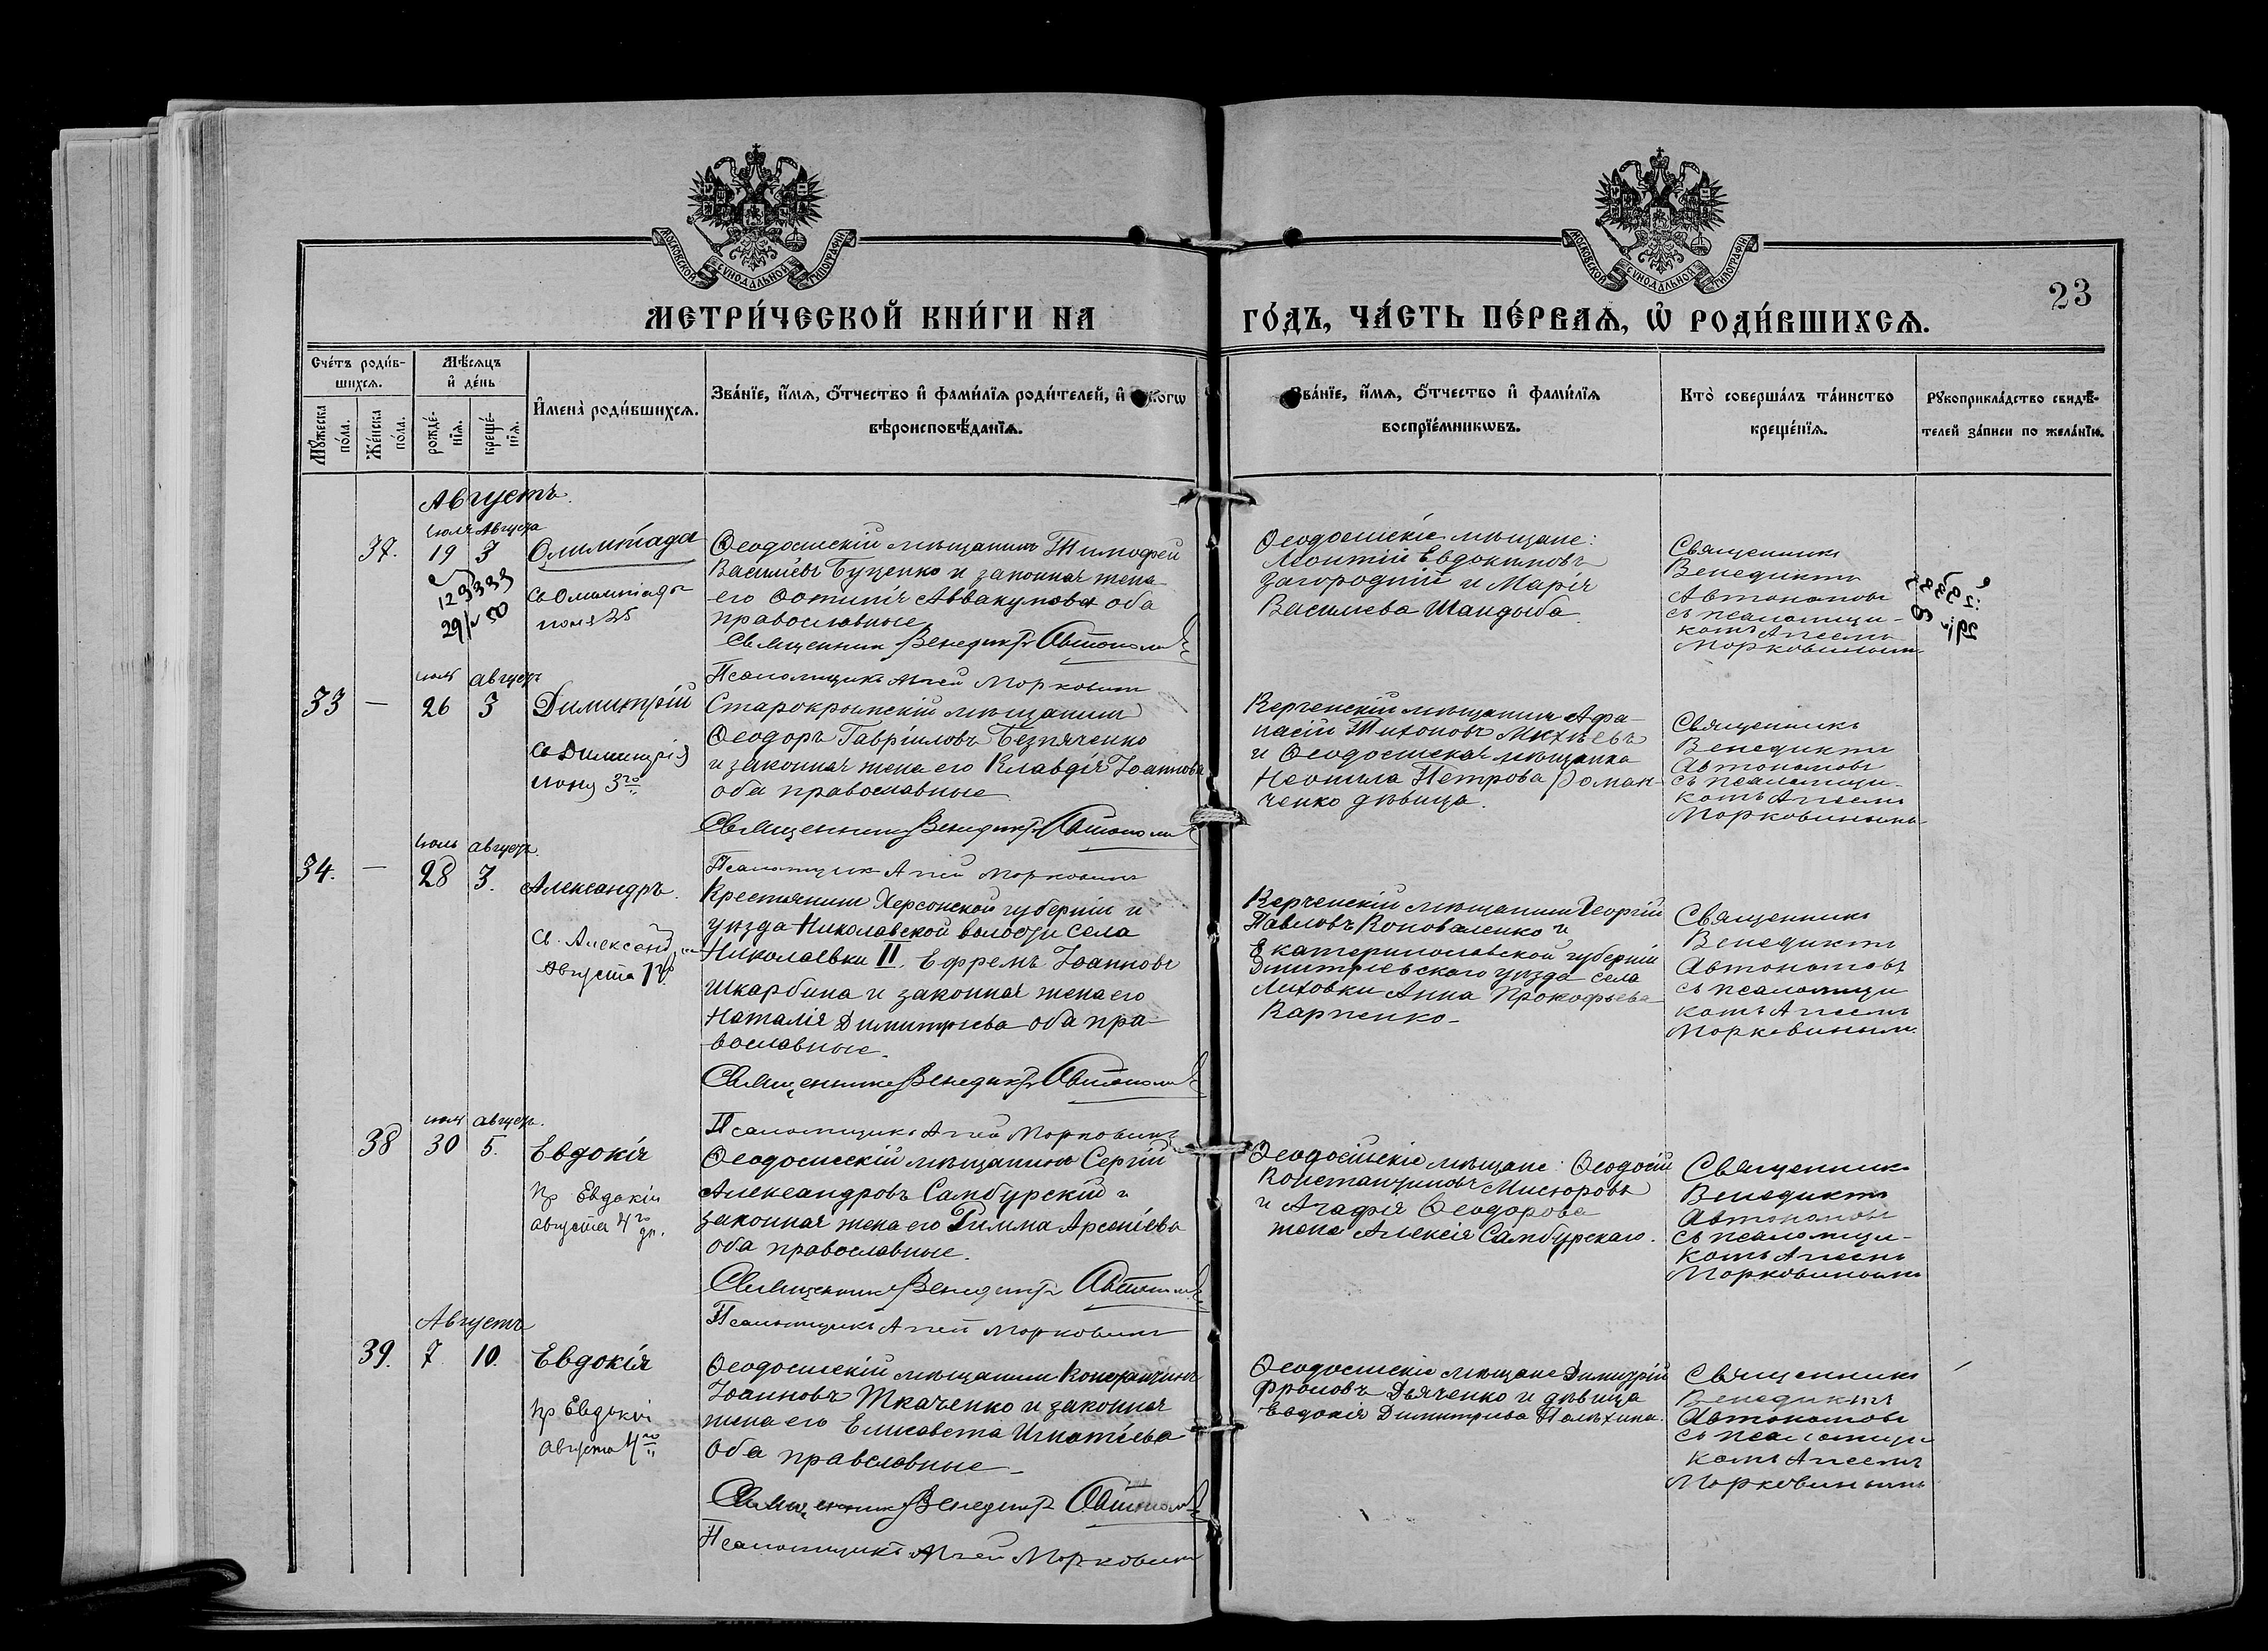 МОСКОВСКОЙ СѴНОДАЛЬНОЙ ТИПОГРАФІИ
МОСКОВСКОЙ СѴНОДАЛЬНОЙ ТИПОГРАФІИ
23
МЕТРИ́ЧЕСКОЙ КНИ́ГИ НА ГО́ДЪ, ЧА́СТЬ ПЕ́РВАѦ, Ѡ҆ РОДИ́ВШИХСѦ.
Сче́тъ роди́в-
шихсѧ.
Мѹ́жеска по́ла.
Же́нска по́ла.
Мѣ́сѧцъ
и҆ де́нь
рожде́-
нїѧ.
креще́-
нїѧ.
И҆мена̀ роди́вшихсѧ.
Зва́нїе, и҆́мѧ, ѻ҆́тчество и҆ фами́лїѧ роди́телей, и҆
вѣроисповѣ́данїѧ.
Зва́нїе, и҆́мѧ, ѻ҆́тчество и҆ фами́лїѧ
воспрїе́мникѡвъ.
Кто̀ соверша́лъ та́инство
креще́нїѧ.
Рѹкоприкла́дство свидѣ́-
телей за́писи по жела́нїю.
Августъ.
Іюля Августа
37. 19 3 Олимпіада
129333
29/ 50
Св Олимпіады
іюля 25
Ѳеодосійскій мѣщанинъ Тимофей
Васильевъ Буценко и законная жена
его Фотинія Аввакумова оба
православные
Священникъ Венедиктъ Автономовъ
Псаломщикъ Аггей Морковинъ
Ѳеодосійскіе мѣщане:
Леонтій Евдокимовъ
Загородній и Марія
Васильева Шандыба.
Священникъ
Венедиктъ
Автономовъ
съ псаломщи-
комъ Аггеемъ
Морковинымъ
іюль августъ
33 — 26 3 Димитрій
Св Димитрія
іюня 3го
Старокрымскій мѣщанинъ
Ѳеодоръ Гавріиловъ Безпяченко
и законная жена его Клавдія Іоаннова
оба православные
Священникъ Венедиктъ Автономовъ
Псаломщикъ Аггей Морковинъ
Керченскій мѣщанинъ Афа-
насій Тихоновъ Михѣевъ
и Ѳеодосійская мѣщанка
Неонила Петрова Роман-
ченко дѣвица.
Священникъ
Венедиктъ
Автономовъ
съ псаломщи-
комъ Аггеемъ
Морковинымъ
іюль августъ.
34. — 28 3. Александръ.
Св. Александра
Августа
Крестьянинъ Херсонской губерніи и
уѣзда Николавской волости села
Николаевки II. Ефремъ Іоанновъ
Шкарбина и законная жена его
Наталія Димитріева оба пра-
вославные.
Священникъ Венедиктъ Автономовъ
Псаломщикъ Аггей Морковинъ
Керченскій мѣщанинъ Георгій
Павловъ Коноваленко и
Екатеринославской губерніи
Дмитріевскаго уѣзда села
Лиховки Анна Прокофьева
Карпенко.
Священникъ
Венедиктъ
Автономовъ
съ псаломщи
комъ Аггеемъ
Морковинымъ.
іюль августъ.
38 30 5. Евдокія
пр Евдокіи
августа 4го дн.
Ѳеодосійскій мѣщанинъ Сергій
Александровъ Самбурскій и
законная жена его Римма Арсеніева
оба православные.
Священникъ Венедиктъ Автономовъ
Псаломщикъ Аггей Морковинъ
Ѳеодосійскіе мѣщане: Ѳеодосій
Константиновъ Мисюровъ
и Агафія Ѳеодорова
жена Алексія Самбурскаго.
Священникъ
Венедиктъ
Автономовъ
съ псаломщи-
комъ Аггеемъ
Морковинымъ
Августъ
39. 7. 10. Евдокія
пр Евдокіи
августа 4го
Ѳеодосійскій мѣщанинъ Константинъ
Іоанновъ Ткаченко и законная
жена его Елисавета Игнатіева
Оба православные
Священникъ Венедиктъ Автономовъ
Псаломщикъ Аггей Морковинъ
Ѳеодосійскіе мѣщане Димитрій
Фроловъ Дьяченко и дѣвица
Евдокія Димитріева
Священникъ
Венедиктъ
Автономовъ
съ псаломщи
комъ Аггеемъ
Морковинымъ